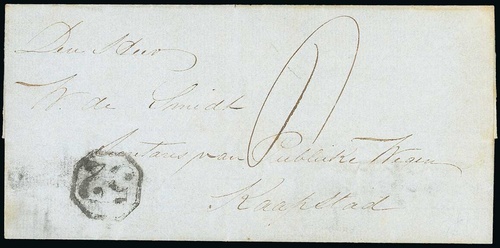 Den Heer
W. de Smidt
Secretaris van Publieke Wegen
Kaapstad